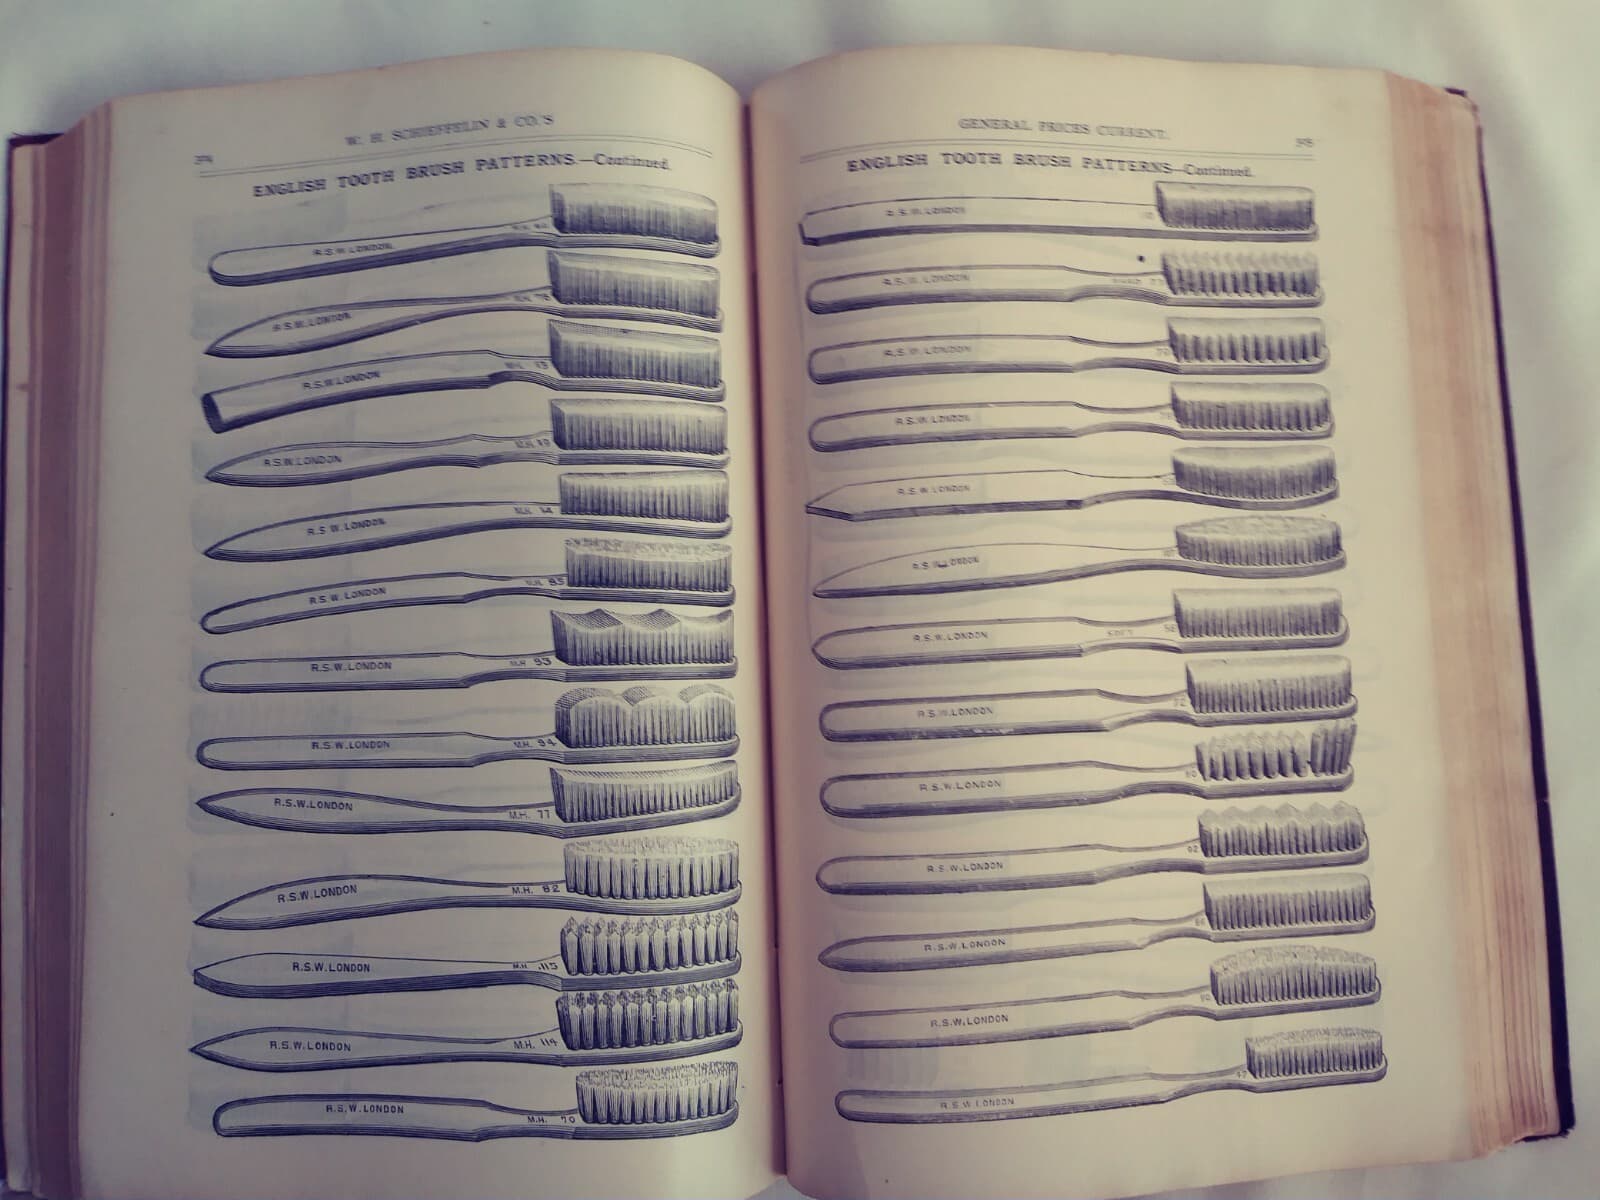 W. H. SCHIEFFELIN & CO.'S
ENGLISH TOOTH BRUSH PATTERNS.—Continued.
R.S.W. LONDON.
R.S.W. LONDON M.H. 76
R.S.W. LONDON M.H.
R.S.W. LONDON M.H.
R.S.W. LONDON M.H. 14
R.S.W. LONDON M.H. 85
R.S.W. LONDON M.H. 93
R.S.W. LONDON M.H. 94
R.S.W. LONDON M.H. 77
R.S.W. LONDON M.H. 82
R.S.W. LONDON M.H. 115
R.S.W. LONDON M.H. 114
R.S.W. LONDON M.H. 70
GENERAL PRICES CURRENT.
ENGLISH TOOTH BRUSH PATTERNS—Continued.
R.S.W. LONDON
R.S.W. LONDON
R.S.W. LONDON
R.S.W. LONDON
R.S.W. LONDON
R.S.W. LONDON
R.S.W. LONDON SOFT
R.S.W. LONDON 72
R.S.W. LONDON
R.S.W. LONDON 92
R.S.W. LONDON
R.S.W. LONDON
R.S.W. LONDON